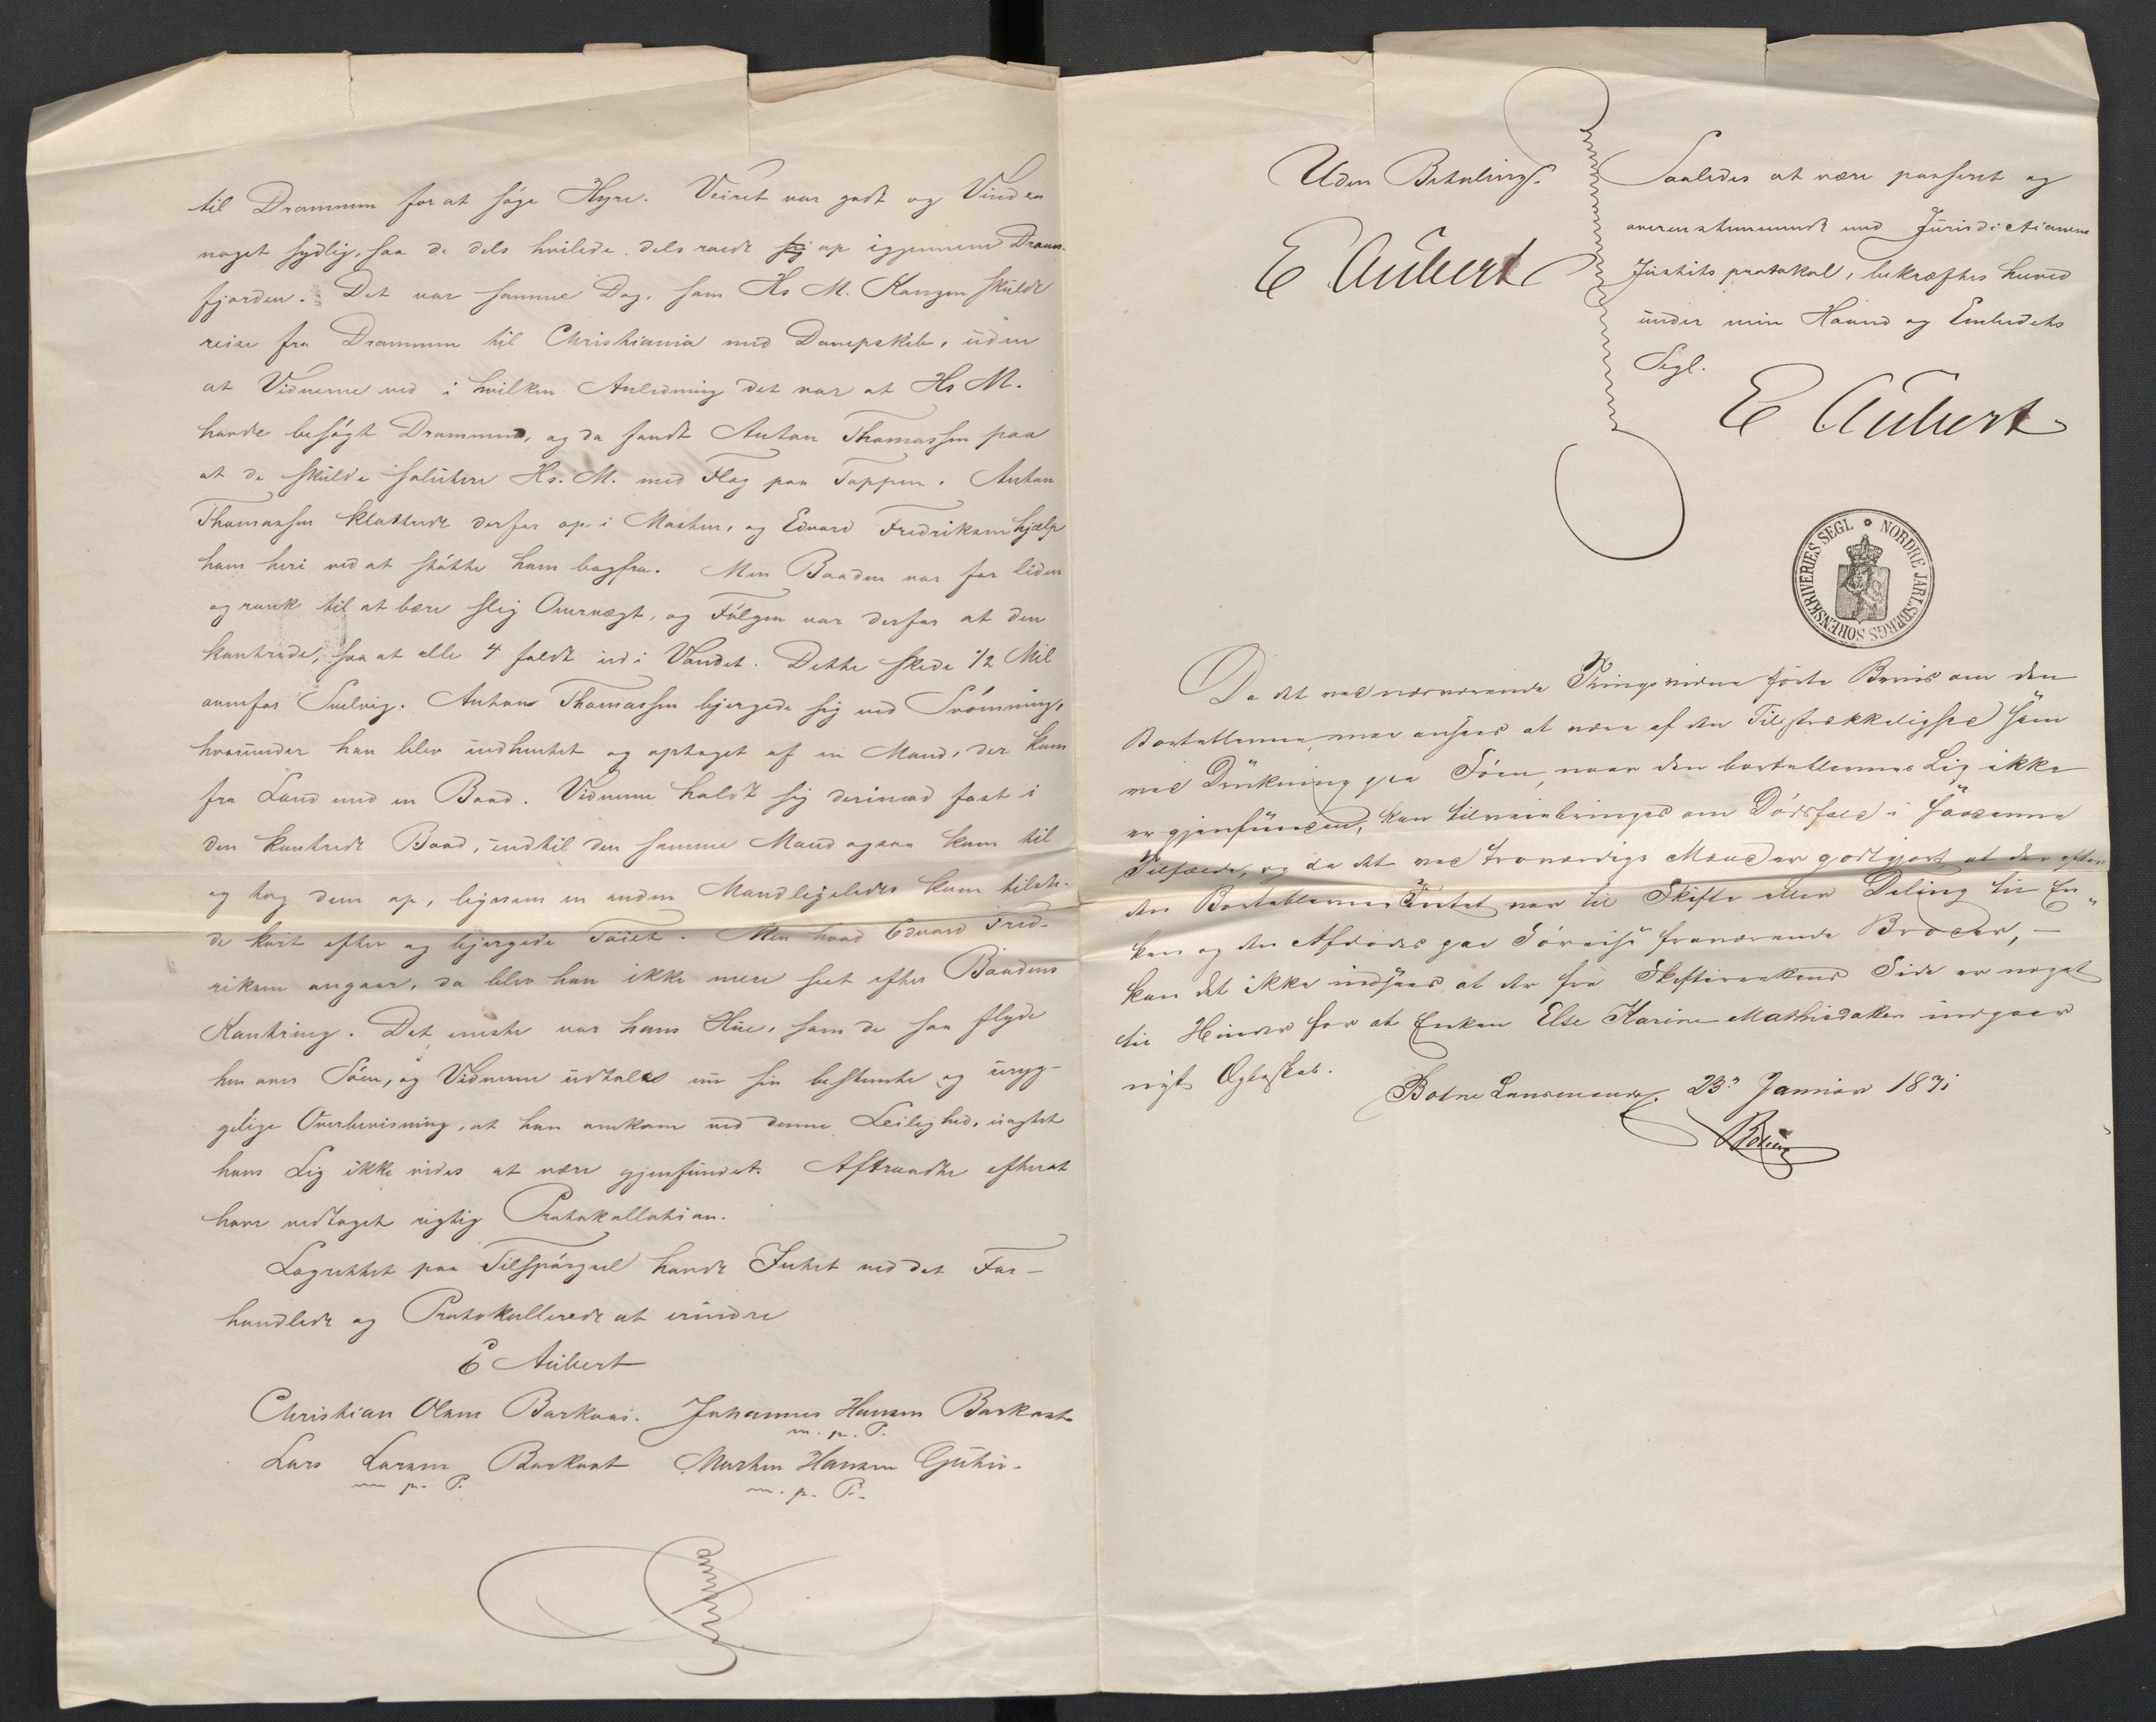 til Drammen for at søge Hyre. Veiret var godt og Vinden
noget sydlig, saa de dels hvilede dels roede sig op igjennem Drams-
fjorden. Det var samme Dag, som Hs M. Kongen skulde
reise fra Drammen til Christiania med Dampskib, uden
at Vidnerne ved i hvilken Anledning det var at Hs M.
havde besøgt Drammen, og da fandt Anton Thomassen paa
at de skulde salutere Hs. M. med Flag paa Toppen. Anton
Thomassen klattrede derfor op i Masten, og Edvard Fredriksen hjalp
ham heri ved at støtte ham bagfra. Men Baaden var for liden
og rank til at bære slig Overvægt, og Følgen var derfor at den
kantrede, saa at alle 4 faldt ud i Vandet. Dette skede 1/2 Mil
ovenfor Svelvig. Anton Thomassen bjergede sig ved Svømning,
hvorunder han blev indhentet og optaget af en Mand, der kom
fra Land med en Baad. Vidnerne holdt sig derimod fast i
den kantrede Baad, indtil den samme Mand ogsaa kom til
og tog dem op, ligesom en anden Mand ligeledes kom tilste-
de kort efter og bjergede Tøiet. Men hvad Edvard Fred-
riksen angaar, da blev han ikke mere seet efter Baadens
Kantring. Det eneste var hans Hue, som de saa flyde
hen over Søen, og Vidnerne udtaler nu sin bestemte og uryg-
gelige Overbevisning, at han omkom ved denne Leilighed, uagtet
hans Lig ikke vides at være gjenfundet. Aftraadte efterat
have vedtaget rigtig Protokollation.
Lagrettet paa Tilspørgsel havde Intet ved det For-
handlede og Protokollerede at erindre
E Aubert
Christian Olsen Barkaas. Johannes Hansen Barkost
m. p. P.
Lars Larsen Barkost Morten Hansen Gutu.
m. p. P. m. p. P.
Uden Betaling.
E Aubert
Saaledes at være passeret og
overensstemmende med Jurisdictionens
Justitsprotokol, bekræftes herved
under min Haand og Embedets
Segl.
E Aubert
NORDRE JARLSBERGS SORENSKRIVERIES SEGL
Da det ved nærværende Thingsvidne førte Beviis om den
Bortblevne maa ansees at være af den Tilstrækkelighed som
ved Drukning paa Søen, naar den bortblevnes Lig ikke
er gjenfunden, kan tilveiebringes om Dødsfald i saadanne
Tilfælde, og da det ved troværdige Mænd er godtgjort at der efter
den Bortblevne Intet var til Skifte eller Deling til En-
ken og den Afdødes paa Søreise fraværende Broder, —
kan det ikke indsees at der fra Skifterettens Side er noget
til Hinder for at Enken Else Karine Mathisdatter indgaar
nyt Ægteskab.
Botne Lensmandsg. 23d Januar 1871